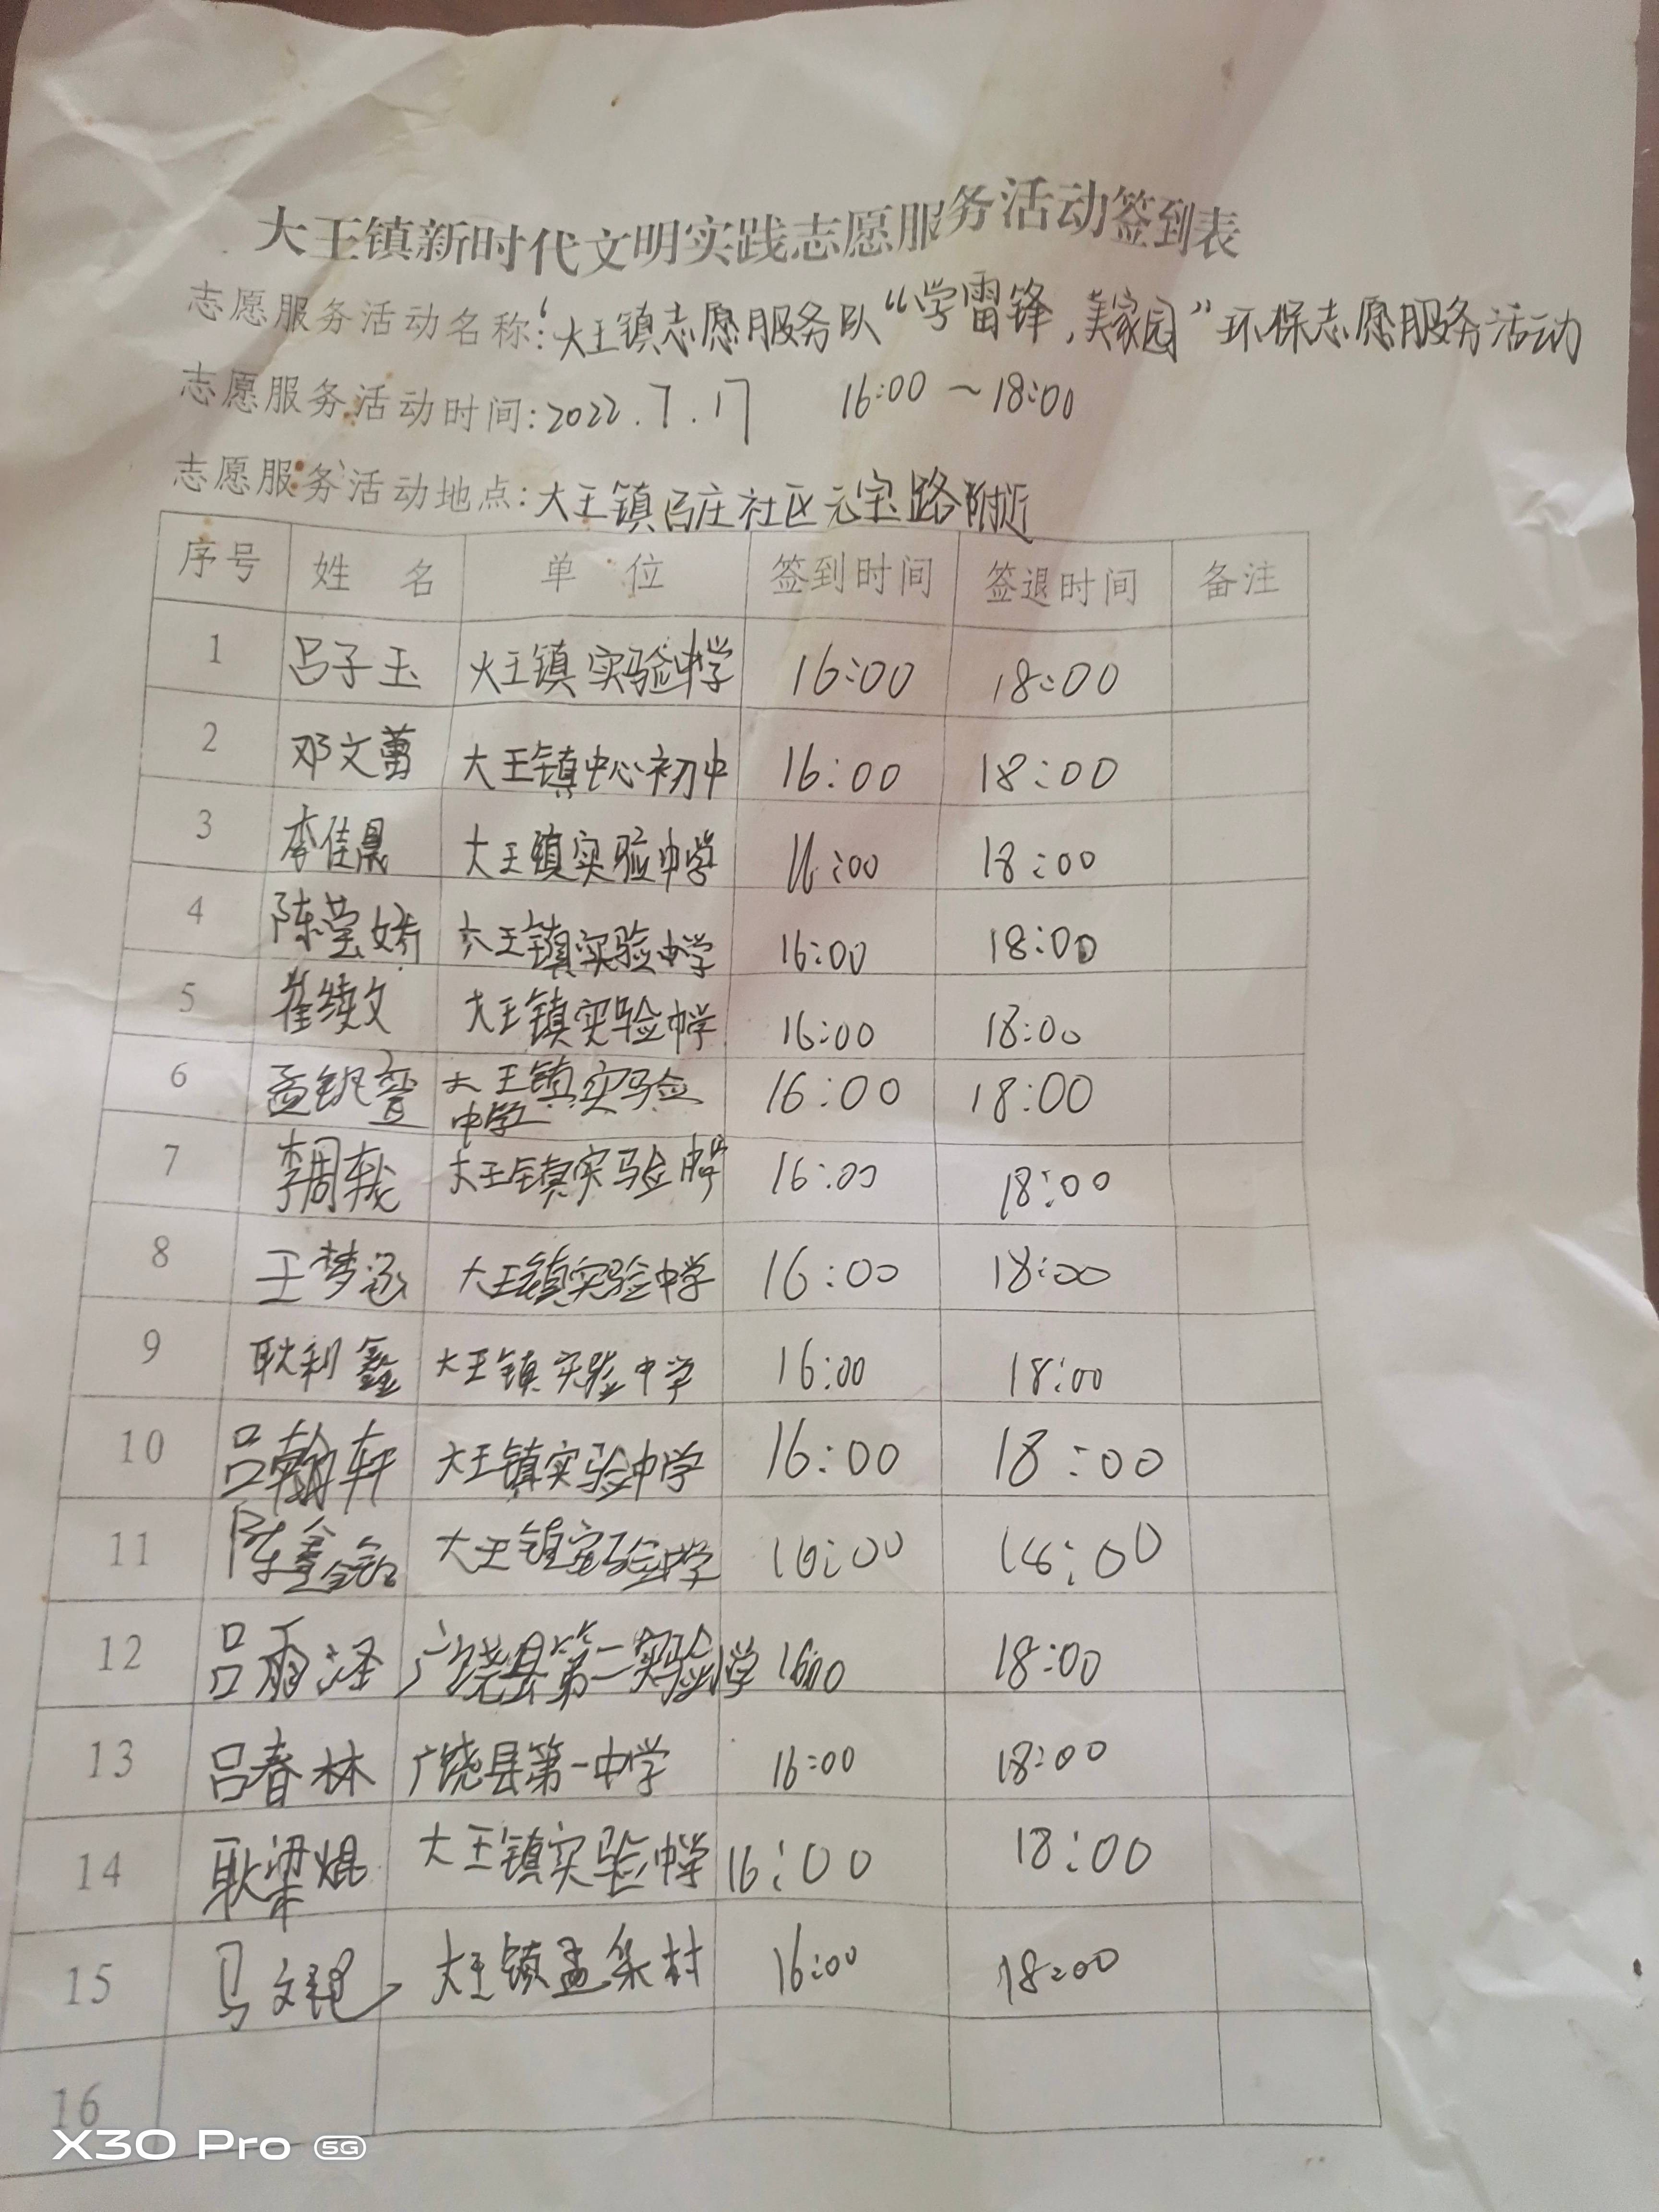 大王镇新时代文明实践志愿服务活动签到表
志愿服务活动名称:大王镇志愿服务队“学雷锋,美家园”环保志愿服务活动
志愿服务活动时间:2022.7.17 16:00~18:00
志愿服务活动地点:大王镇吕庄社区元宝路附近
序号 姓 名 单 位 签到时间 签退时间 备注
1 吕子玉 大王镇实验中学 16:00 18:00
2 邓文蕾 大王镇中心初中 16:00 18:00
3 李佳晟 大王镇实验中学 16:00 18:00
4 陈莹娇 大王镇实验中学 16:00 18:00
5 崔续文 大王镇实验中学 16:00 18:00
6 孟 大王镇实验
中学 16:00 18:00
7 李周 大王镇实验中学 16:00 18:00
8 王梦涵 大王镇实验中学 16:00 18:00
9 耿利鑫 大王镇实验中学 16:00 18:00
10 吕翰轩 大王镇实验中学 16:00 18:00
11 陈鑫铭 大王镇实验中学 16:00 18:00
12 吕雨泽 广饶县第二实验小学 16:00 18:00
13 吕春林 广饶县第一中学 16:00 18:00
14 耿梁焜 大王镇实验中学 16:00 18:00
15 马文 大王镇孟集村 16:00 18:00
16
X30 Pro 5G